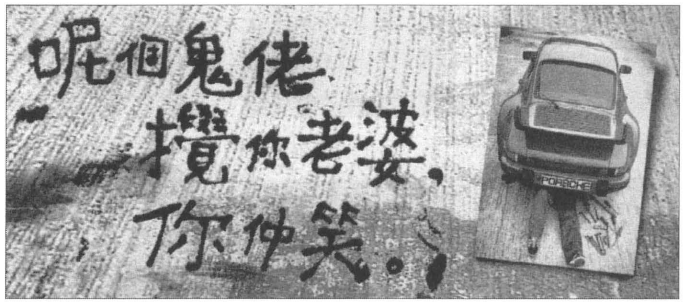 呢個鬼佬
攪你老婆，
你仲笑。
PORSCHE